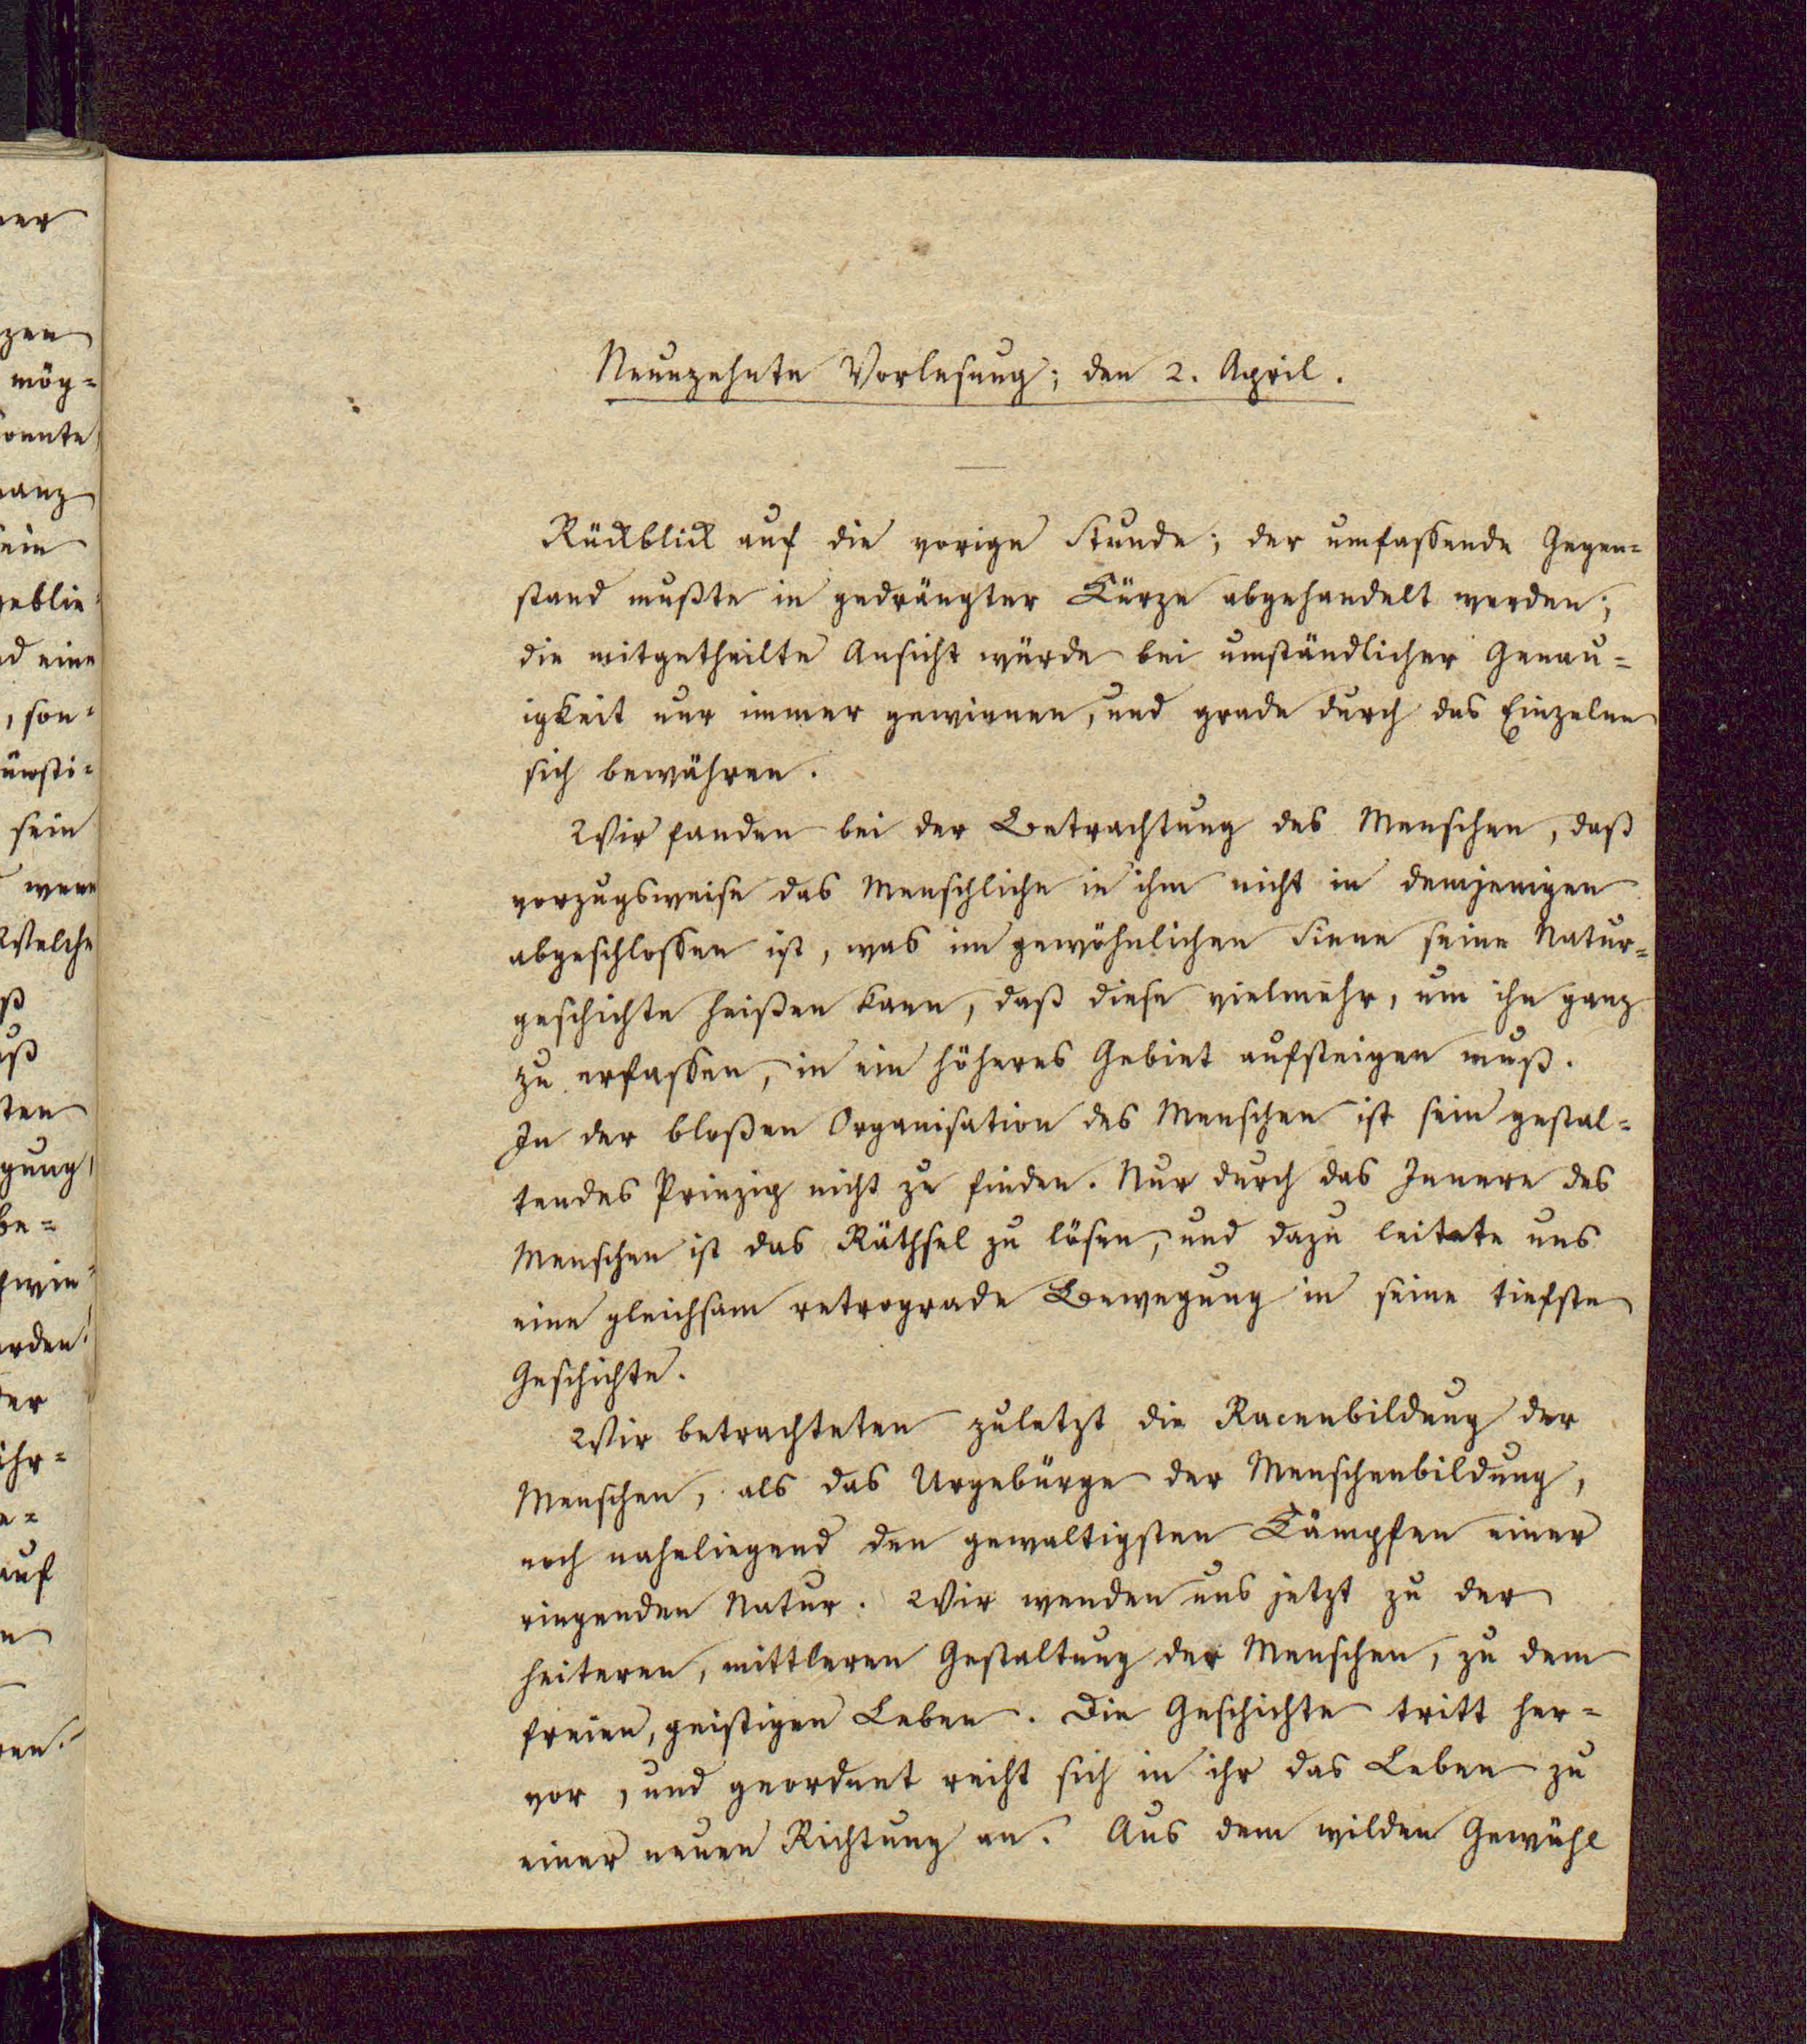 ner
zen
mög=
konnte
ganz
ein
geblie=
nd eine
, son=
sein
wenn
Welche
ß
uß
ten
gung,
be=
den
der
ihr=
e=
auf
n
ren.
Neunzehnte Vorlesung; den 2. April.
Rückblick auf die vorige Stunde; der umfassende Gegen=
stand mußte in gedrängter Kürze abgehandelt werden;
die mitgetheilte Ansicht würde bei umständlicher Genau=
igkeit nur immer gewinnen, und grade durch das Einzelne
sich bewähren.
Wir fanden bei der Betrachtung des Menschen, daß
vorzugsweise das Menschliche in ihm nicht in demjenigen
abgeschlossen ist, was im gewöhnlichen Sinne seine Natur=
geschichte heißen kann, daß diese vielmehr, um ihn ganz
zu erfassen, in ein höheres Gebiet aufsteigen muß.
In der bloßen Organisation des Menschen ist sein gestal=
tendes Prinzip nicht zu finden. Nur durch das Innere des
Menschen ist das Räthsel zu lösen, und dazu leitete uns
eine gleichsam retrograde Bewegung in seine tiefste
Geschichte.
Wir betrachteten zuletzt die Racenbildung der
Menschen, als das Urgebürge der Menschenbildung,
noch naheliegend den gewaltigsten Kämpfen einer
ringenden Natur. Wir wenden uns jetzt zu der
heiteren, mittleren Gestaltung der Menschen, zu dem
freien, geistigen Leben. Die Geschichte tritt her=
vor, und geordnet reiht sich in ihr das Leben zu
einer neuen Richtung an. Aus dem wilden Gewühl